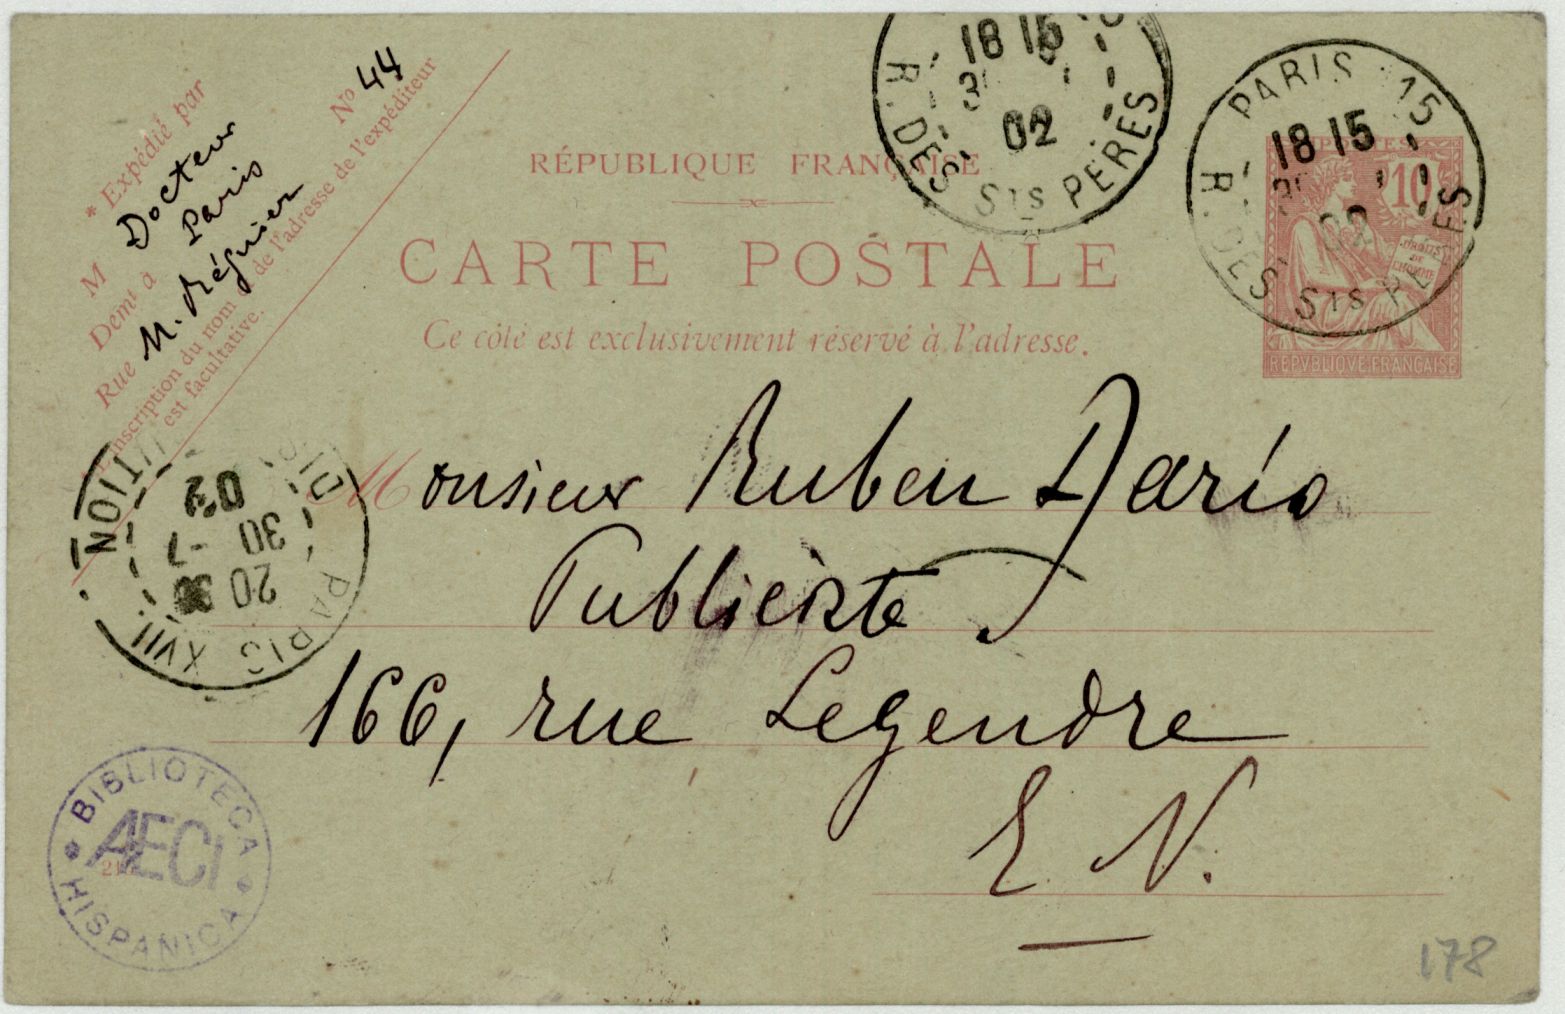 * Expédié par
M Docteur
Demt à Paris
Rue M. Régnier No 44
L'inscription du nom & de l'adresse de l'expéditeur
est facultative.
RÉPUBLIQUE FRANÇAISE
CARTE POSTALE
Ce côté est exclusivement réservé à l'adresse.
18 15
02
R. DES Sts PÈRES
PARIS 15
18 15
02
R. DES Sts PÈRES
POSTES
10
DROITS
DE
L'HOMME
REPVBLIQVE FRANÇAISE
Monsieur Ruben Darío
Publiciste
166, rue Legendre
E N.
PARIS XVII
20 30
30 -7
02
BIBLIOTECA
AECI
HISPANICA
178